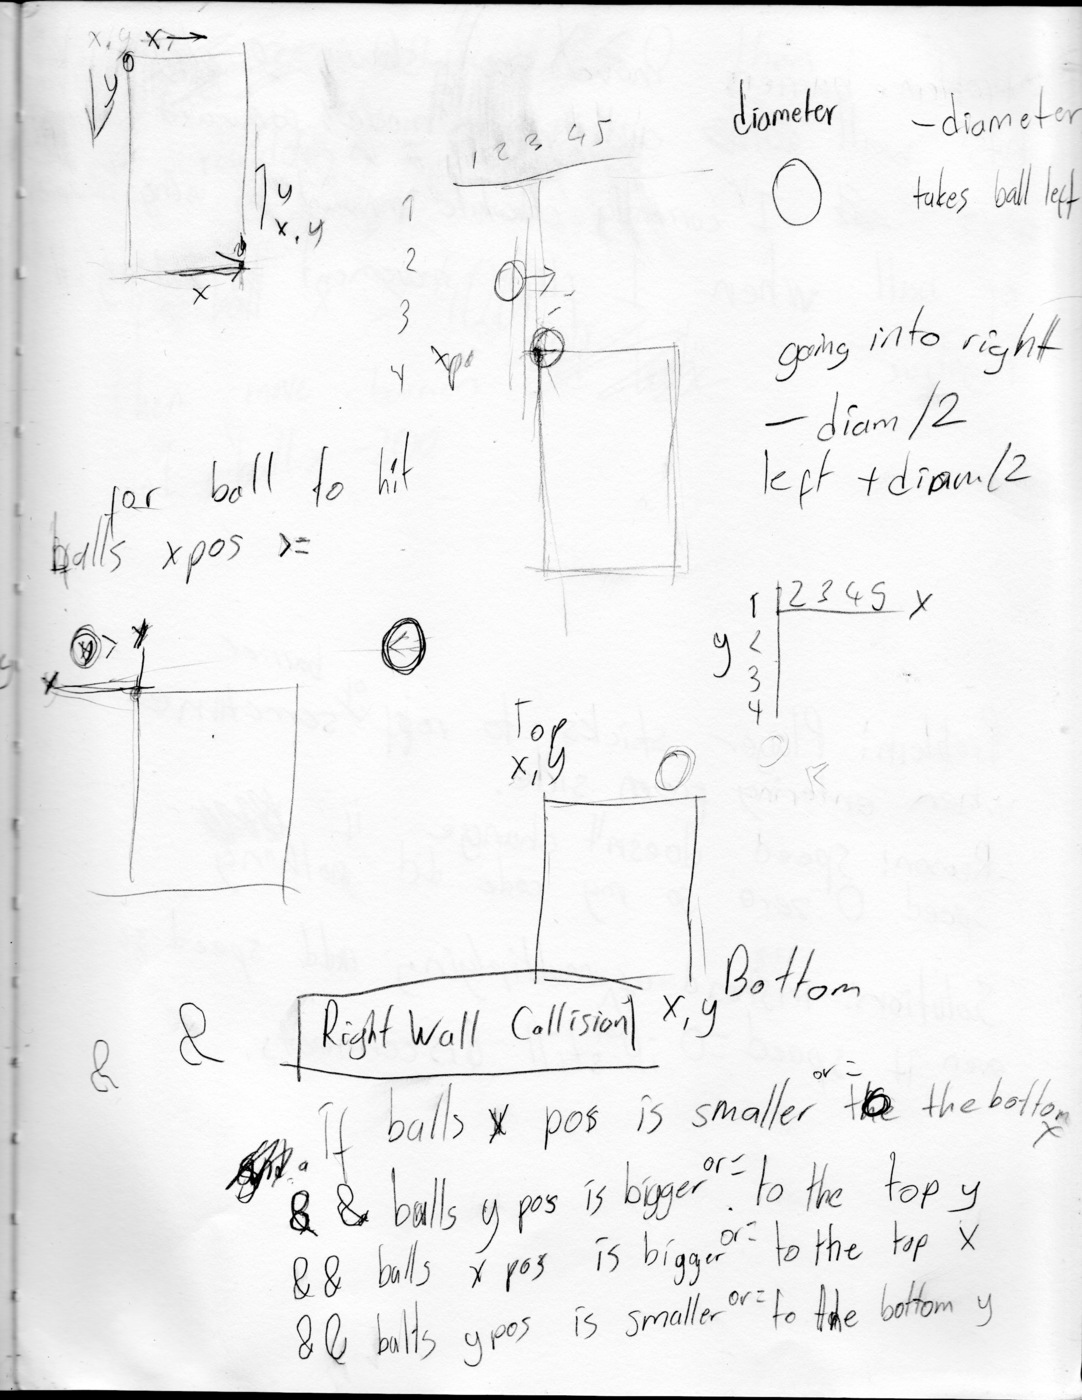 x, y x, →
y
y
x, y
x
1 2 3 4 5
1
2
3
4
xpo
diameter
- diameter
takes ball left
going into right
- diam/2
left + diam/2
for ball to hit
balls xpos >=
x
y
x
1 2 3 4 5 x
y 2
3
4
Top
x, y
Bottom
x, y
& &
Right Wall Collision
If balls x pos is smaller or = to the bottom x
&& balls y pos is bigger or = to the top y
&& balls x pos is bigger or = to the top x
&& balls y pos is smaller or = to the bottom y